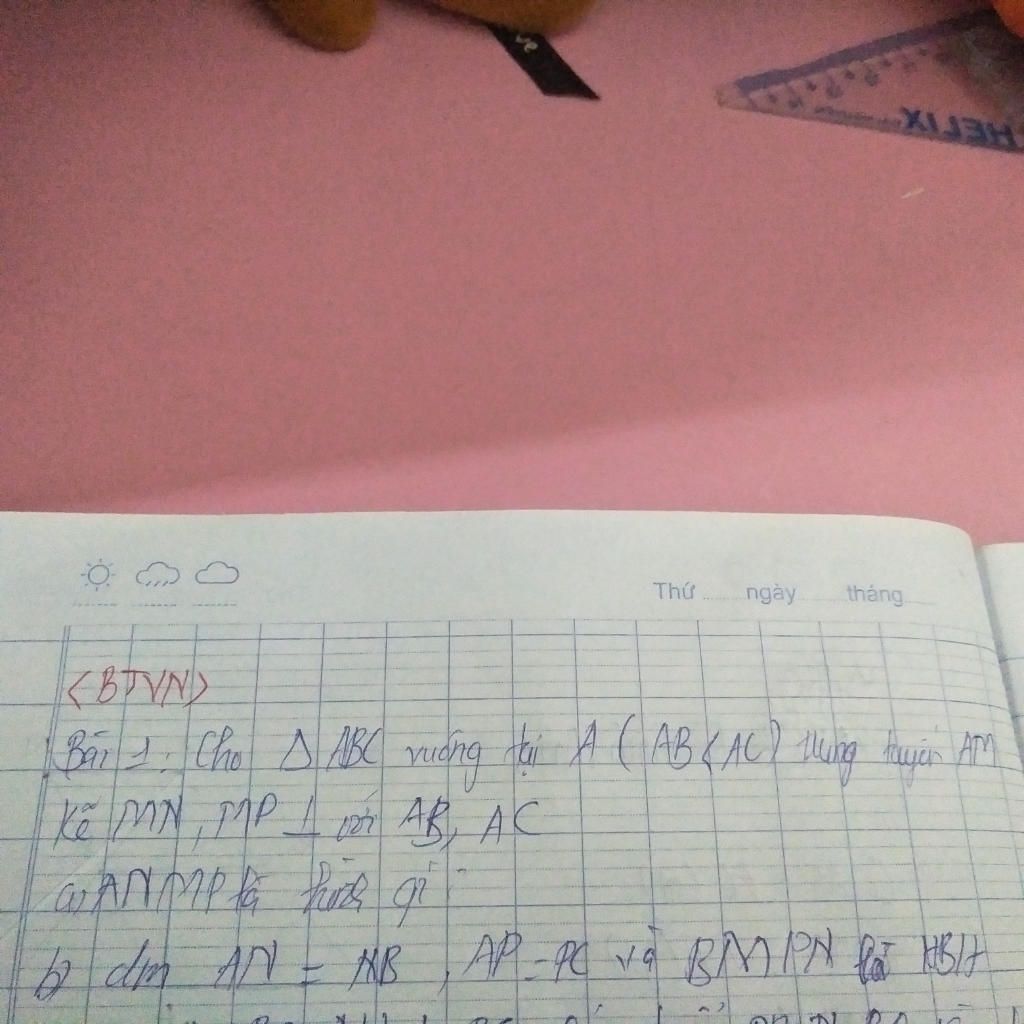 HELIX
Thứ ngày tháng
<BTVN>
Bài 1: Cho Δ ABC vuông tại A (AB<AC) trung tuyến AM
Kẽ MN, MP ⊥ với AB, AC
a) ANMP là hình gì
b) cm AN = NB, AP = PC và BMPN là HBH